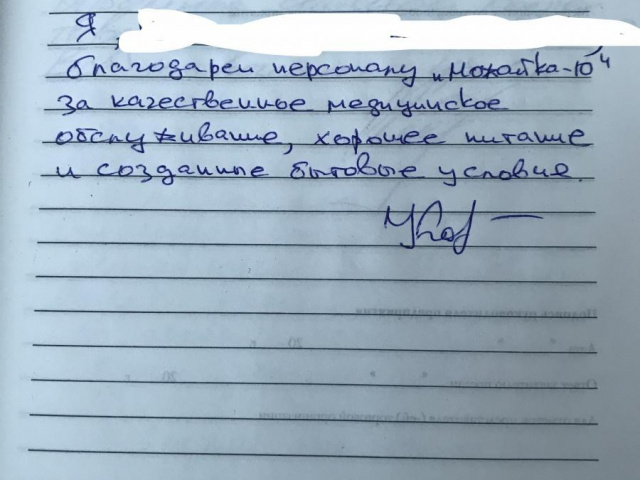 Я
благодарен персоналу „Можайка-10“
за качественное медицинское
обслуживание, хорошее питание
и созданные бытовые условия.